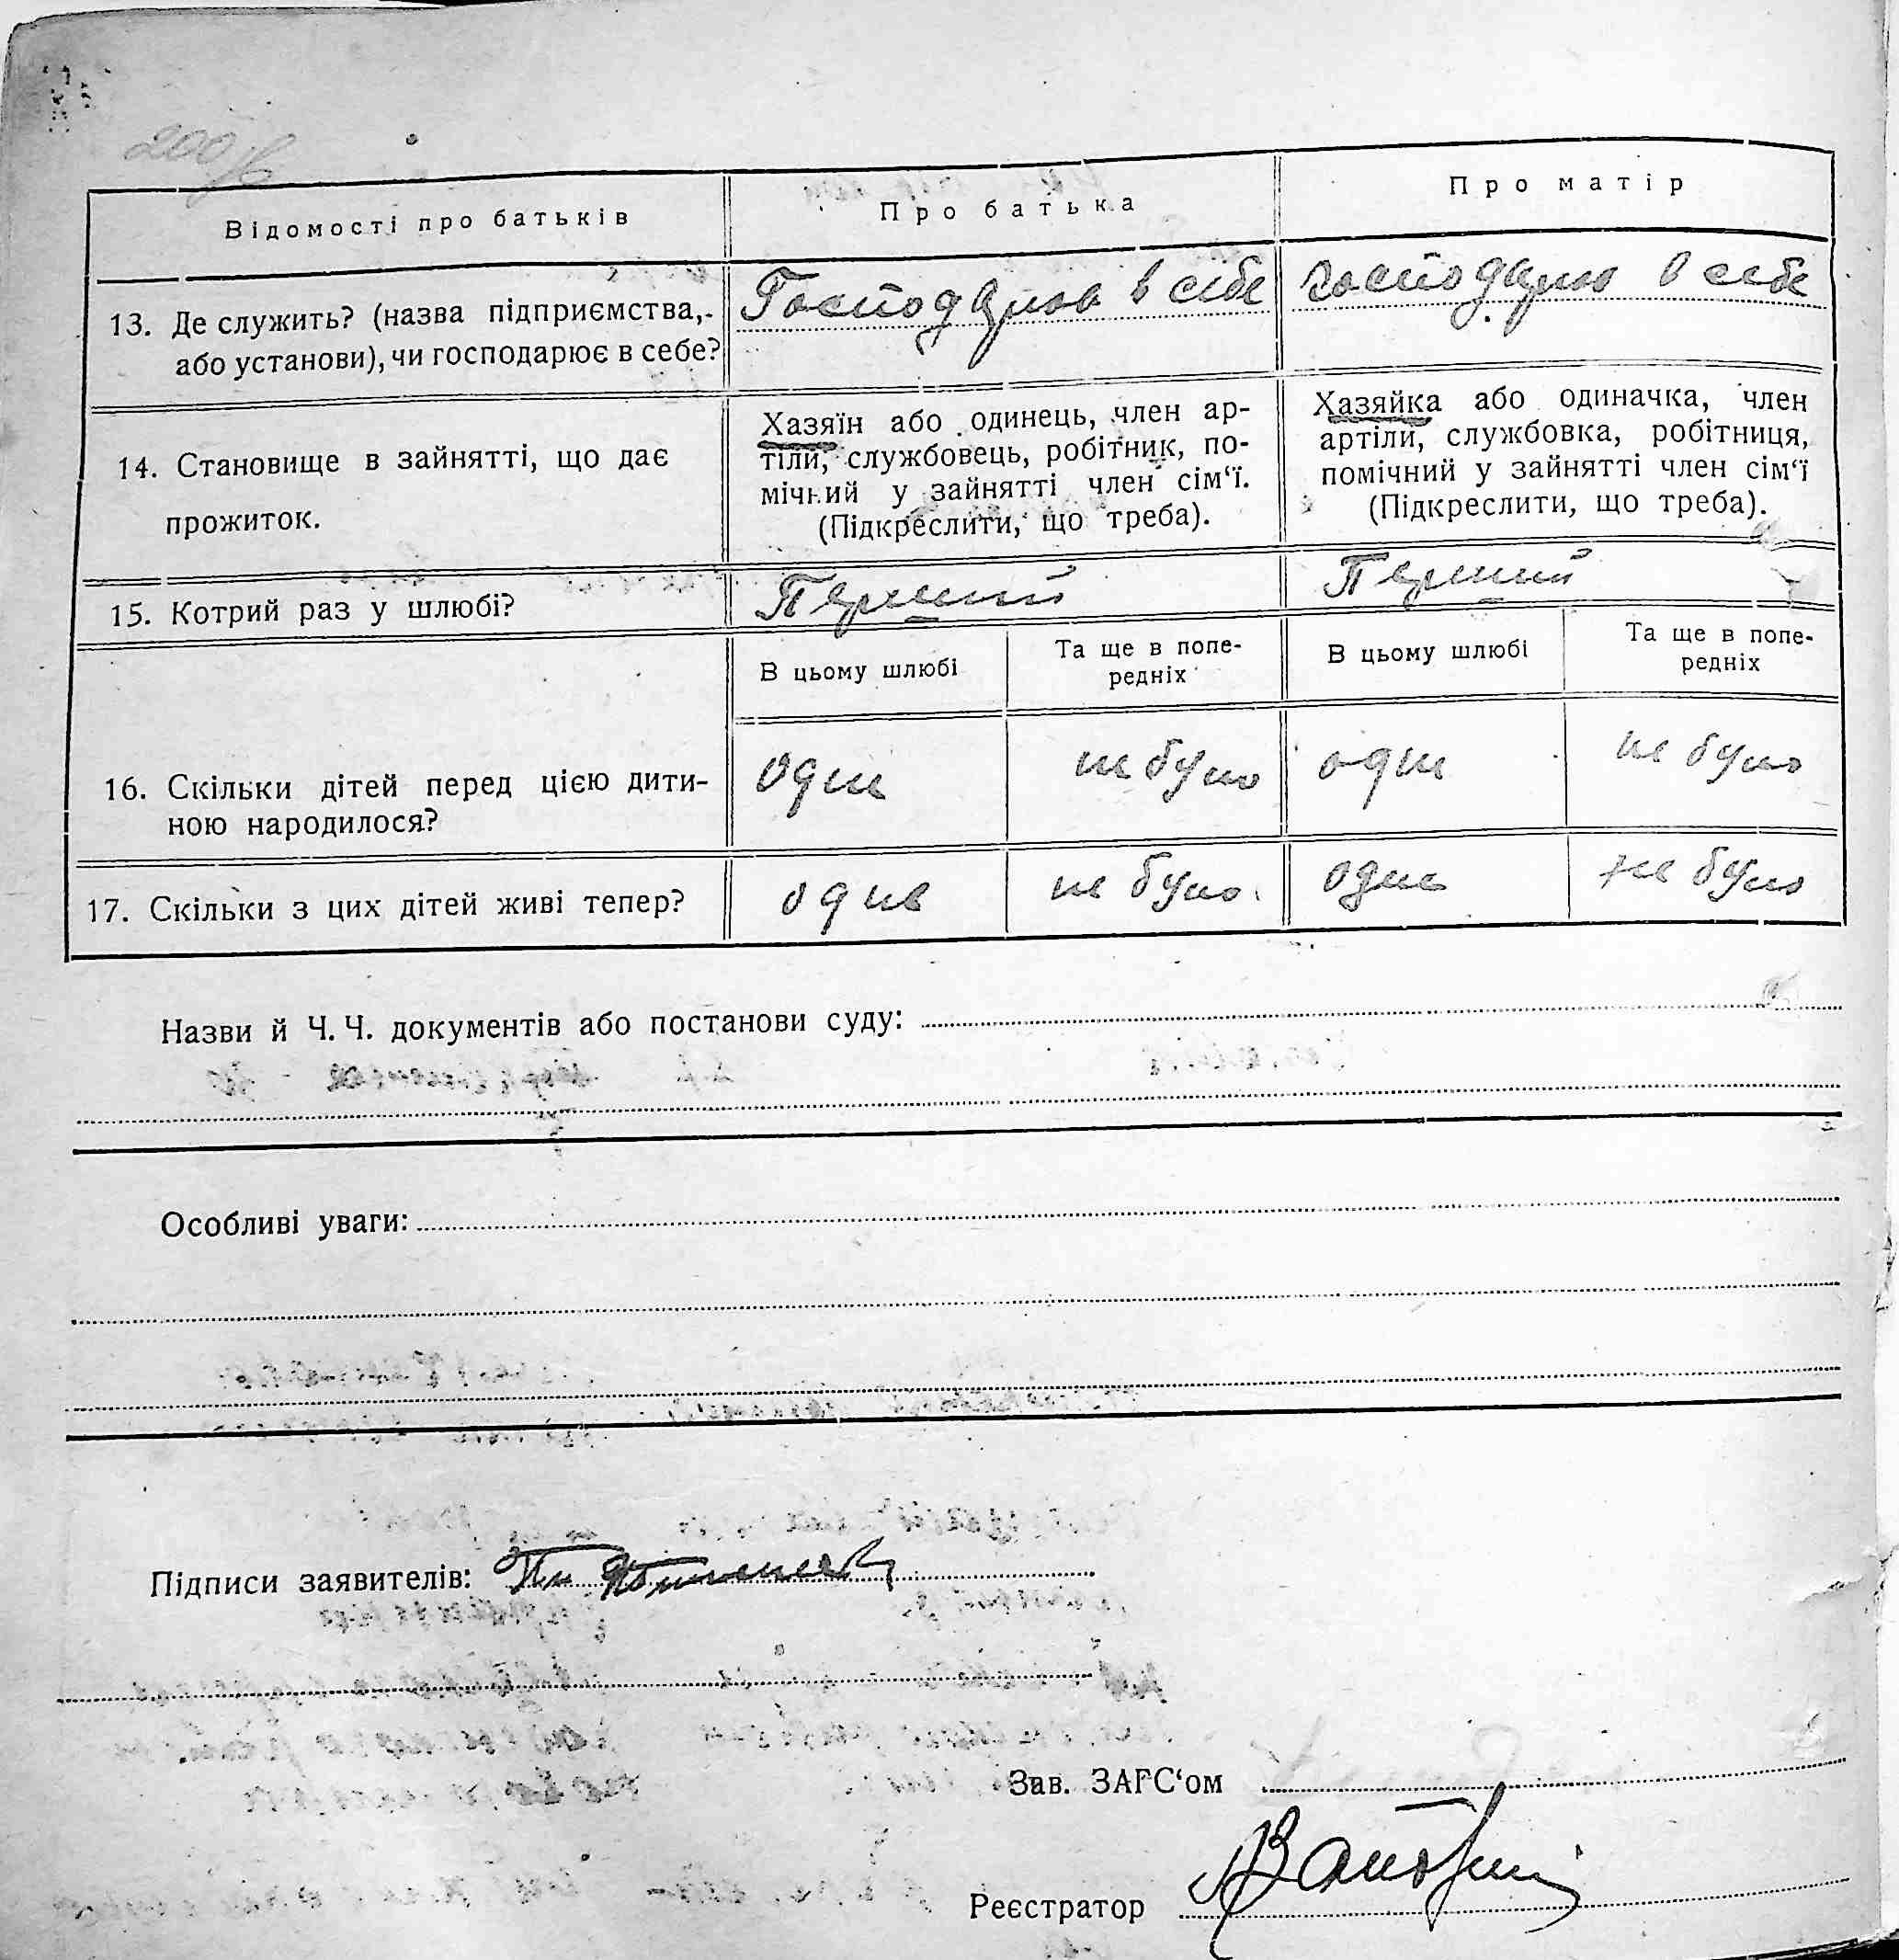 200 
Відомості про батьків
Про батька
Про матір
13. Де служить? (назва підприємства,
або установи), чи господарює в себе?
Господарює в себе
господарює в себе
14. Становище в зайнятті, що дає
прожиток.
Хазяїн або одинець, член ар-
тіли, службовець, робітник, по-
мічний у зайнятті член сім‘ї.
(Підкреслити, що треба).
Хазяйка або одиначка, член
артіли, службовка, робітниця,
помічний у зайнятті член сім‘ї
(Підкреслити, що треба).
15. Котрий раз у шлюбі?
Перший
Перший
В цьому шлюбі
Та ще в попе-
редніх
В цьому шлюбі
Та ще в попе-
редніх
16. Скільки дітей перед цією дити-
ною народилося?
одне
не було
одне
не було
17. Скільки з цих дітей живі тепер?
одне
не було
одне
не було
Назви й Ч. Ч. документів або постанови суду:
Особливі уваги:
Підписи заявителів:
Зав. ЗАГС‘ом
Реєстратор